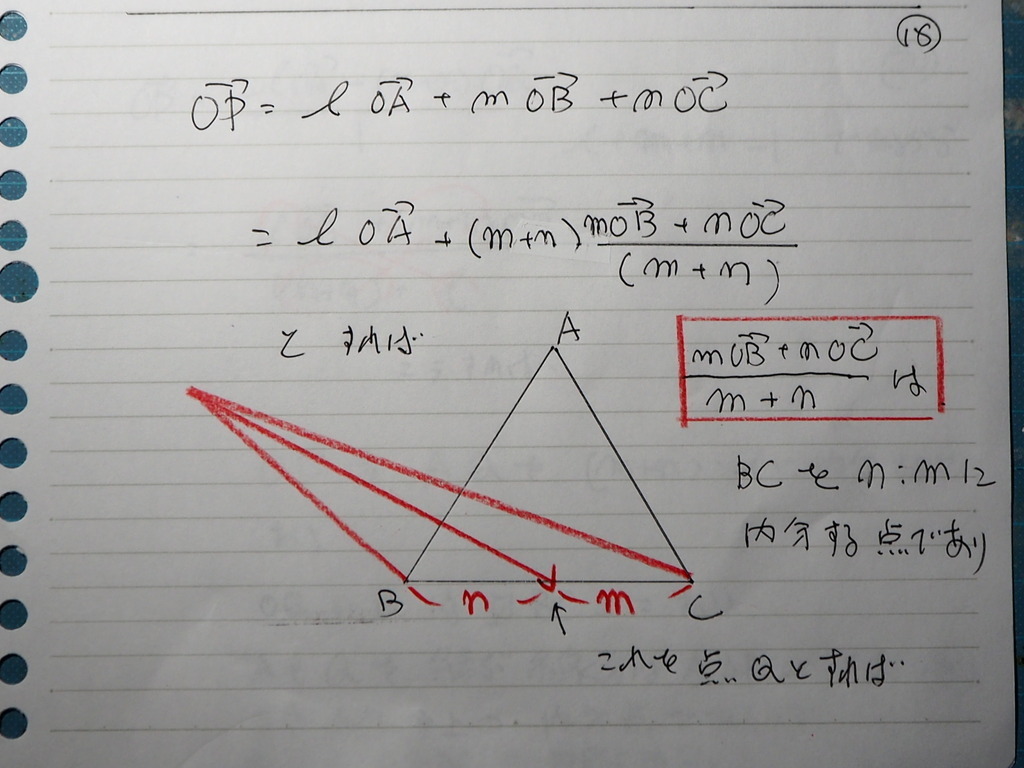 ⑱
OP→ = l OA→ + m OB→ + n OC→
= l OA→ + (m+n) (mOB→ + nOC→)/(m+n)
と すれば‥
A
(mOB→ + nOC→)/(m+n) は
BC を n:m に
内分する点であり
B n m C
↑
これを点Qとすれば‥